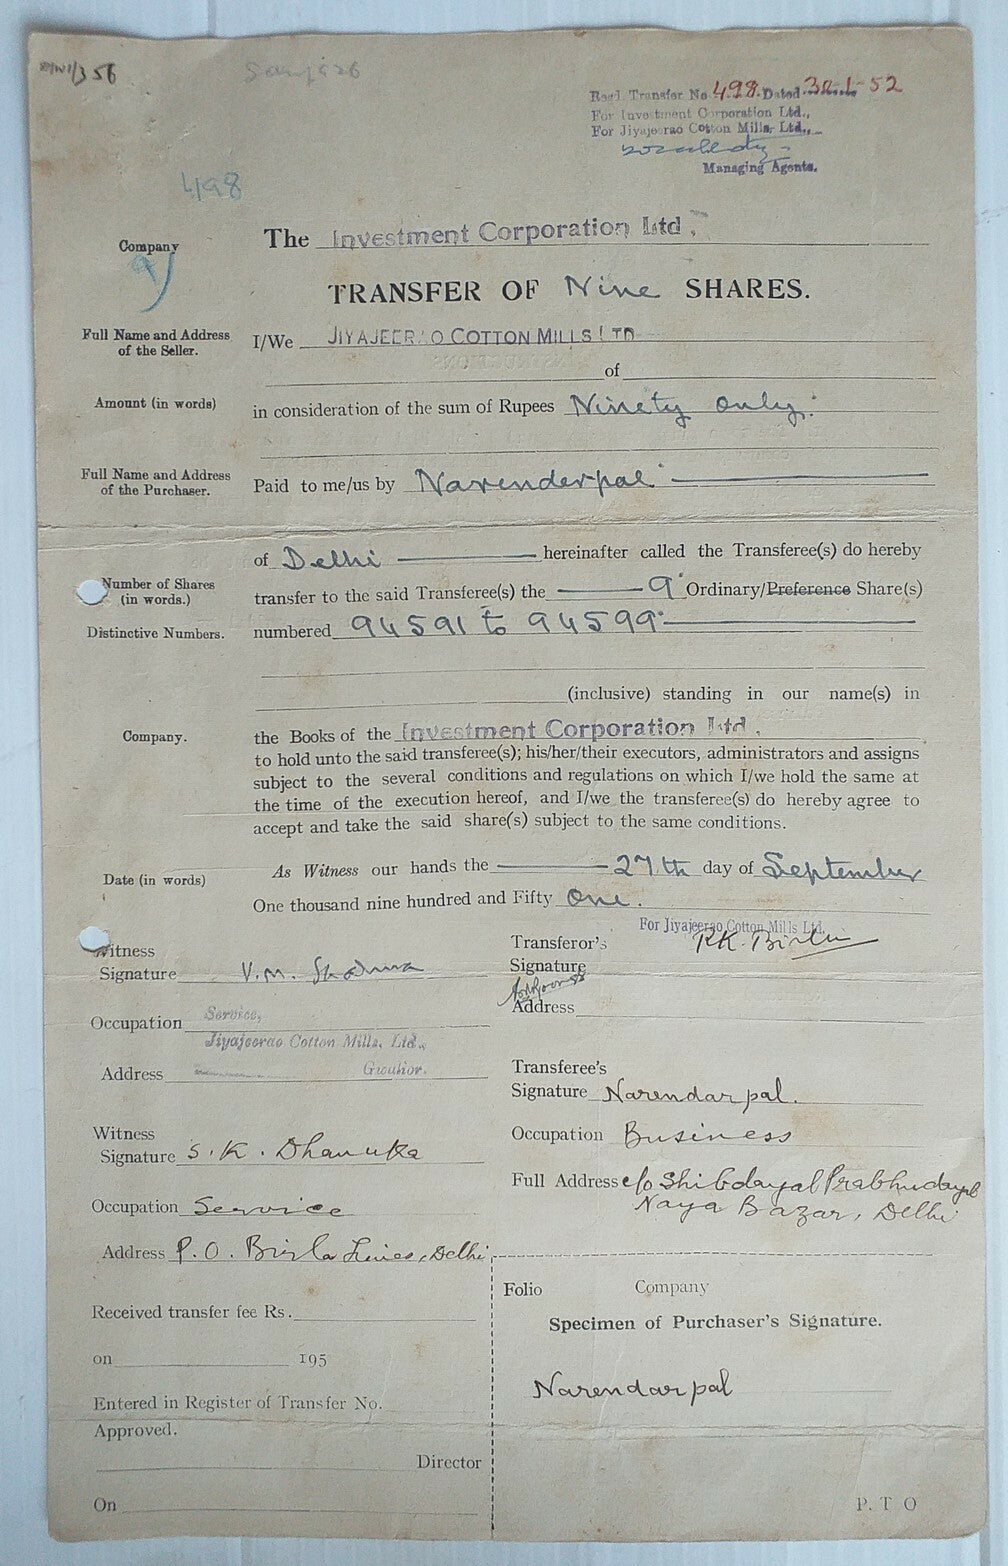 356
Regd. Transfer No 498. Dated 30-1-52
For Investment Corporation Ltd.,
For Jiyajeerao Cotton Mills, Ltd.,
Managing Agents.
498
Company
The Investment Corporation Ltd.,
9
TRANSFER OF Nine SHARES.
Full Name and Address of the Seller.
I/We JIYAJEERAO COTTON MILLS LTD
of
Amount (in words)
in consideration of the sum of Rupees Ninety only.
Full Name and Address of the Purchaser.
Paid to me/us by Narenderpal
of Delhi hereinafter called the Transferee(s) do hereby
Number of Shares (in words.)
transfer to the said Transferee(s) the 9 Ordinary/Preference Share(s)
Distinctive Numbers.
numbered 94591 to 94599
(inclusive) standing in our name(s) in
Company.
the Books of the Investment Corporation Ltd.,
to hold unto the said transferee(s); his/her/their executors, administrators and assigns
subject to the several conditions and regulations on which I/we hold the same at
the time of the execution hereof, and I/we the transferee(s) do hereby agree to
accept and take the said share(s) subject to the same conditions.
Date (in words)
As Witness our hands the 27th day of September
One thousand nine hundred and Fifty One.
For Jiyajeerao Cotton Mills Ltd.
Witness Signature V.M. Sharma
Transferor's Signature R.K. Birla
Address
Occupation Service,
Jiyajeerao Cotton Mills, Ltd.,
Address Gwalior.
Transferee's
Signature Narendarpal.
Witness
Signature S. K. Dhanuka
Occupation Business
Full Address c/o Shibdayal Prabhudayal
Naya Bazar, Delhi
Occupation Service
Address P.O. Birla Lines, Delhi
Folio Company
Received transfer fee Rs.
Specimen of Purchaser's Signature.
on 195
Narendarpal
Entered in Register of Transfer No.
Approved.
Director
On
P. T O